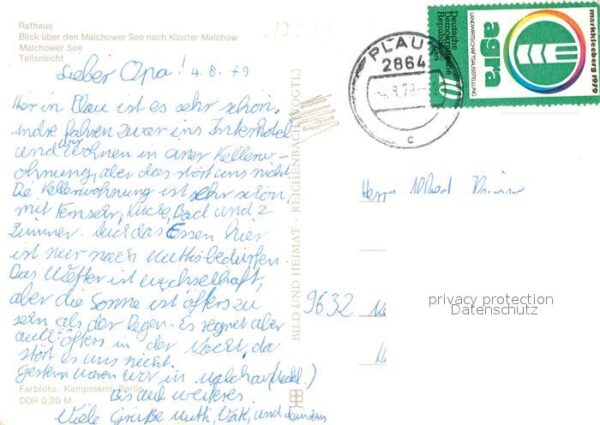 Rathaus
Blick über den Malchower See nach Kloster Malchow
Malchower See
Teilansicht
Lieber Opa! 4.8.79
Hier in Plau ist es sehr schön.
Andre fahren zwar ins Interhotel
und wir wohnen in einer Kellerw-
ohnung, aber das stört uns nicht.
Die Kellerwohnung ist sehr schön,
mit Fernseh, Küche, Bad und 2
Zimmer. Auch das Essen hier
ist nur nach Muttis bedürfen.
Das Wetter ist wechselhaft,
aber die Sonne ist öfters zu
sehn als der Regen. Es regnet aber
auch öfters in der Nacht, da
stört es uns nicht.
Gestern waren wir in Malchow
Farbfoto: Kampmann, Berlin
DDR 0,20 M
Bis auf weiteres.
Viele Grüße Mutti, Vati, und
BILD UND HEIMAT · REICHENBACH (VOGTL)
PLAU
2864
c
Deutsche
Demokratische
Republik
10
LANDWIRTSCHAFTSAUSSTELLUNG
agra
markkleeberg 1979
Herrn
9632
privacy protection
Datenschutz